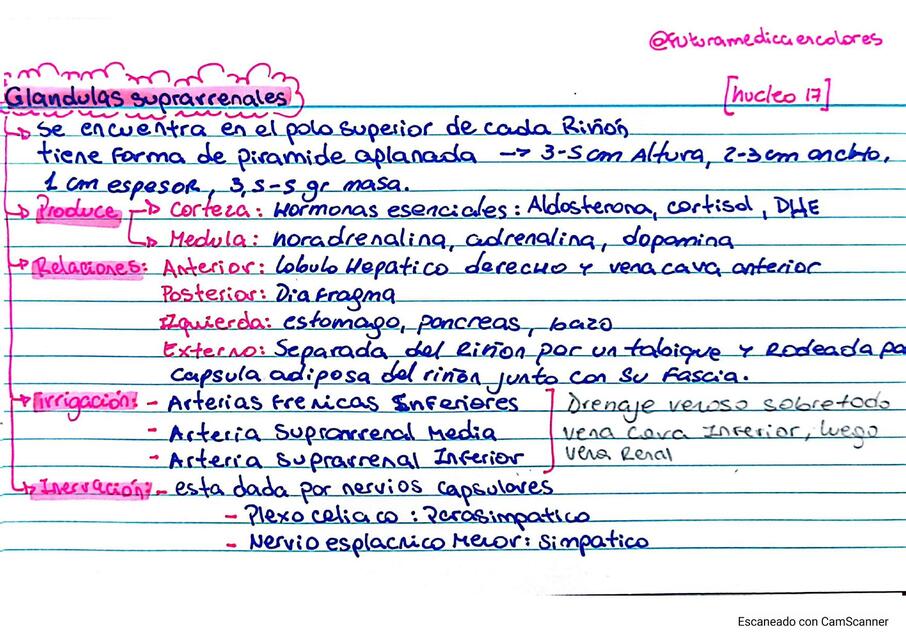 @futuramedicaencolores
Glandulas suprarrenales
[nucleo 17]
Se encuentra en el polo superior de cada Riñón
tiene forma de piramide aplanada → 3-5cm Altura, 2-3cm ancho,
1 cm espesor, 3,5-5 gr masa.
Produce → Corteza: Hormonas esenciales: Aldosterona, cortisol, DHE
→ Medula: noradrenalina, adrenalina, dopamina
Relaciones: Anterior: lobulo Hepatico derecho y vena cava anterior
Posterior: Diafragma
Izquierda: estomago, pancreas, bazo
Externo: Separada del Riñon por un tabique y Rodeada po
capsula adiposa del riñon junto con su fascia.
Irrigación: - Arterias Frenicas Inferiores
- Arteria Suprarrenal Media
- Arteria suprarrenal Inferior
Drenaje venoso sobretodo
vena cava Inferior, luego
vena Renal
Inervación: - esta dada por nervios capsulares
- Plexo celiaco: Parasimpatico
- Nervio esplacnico Menor: simpatico
Escaneado con CamScanner